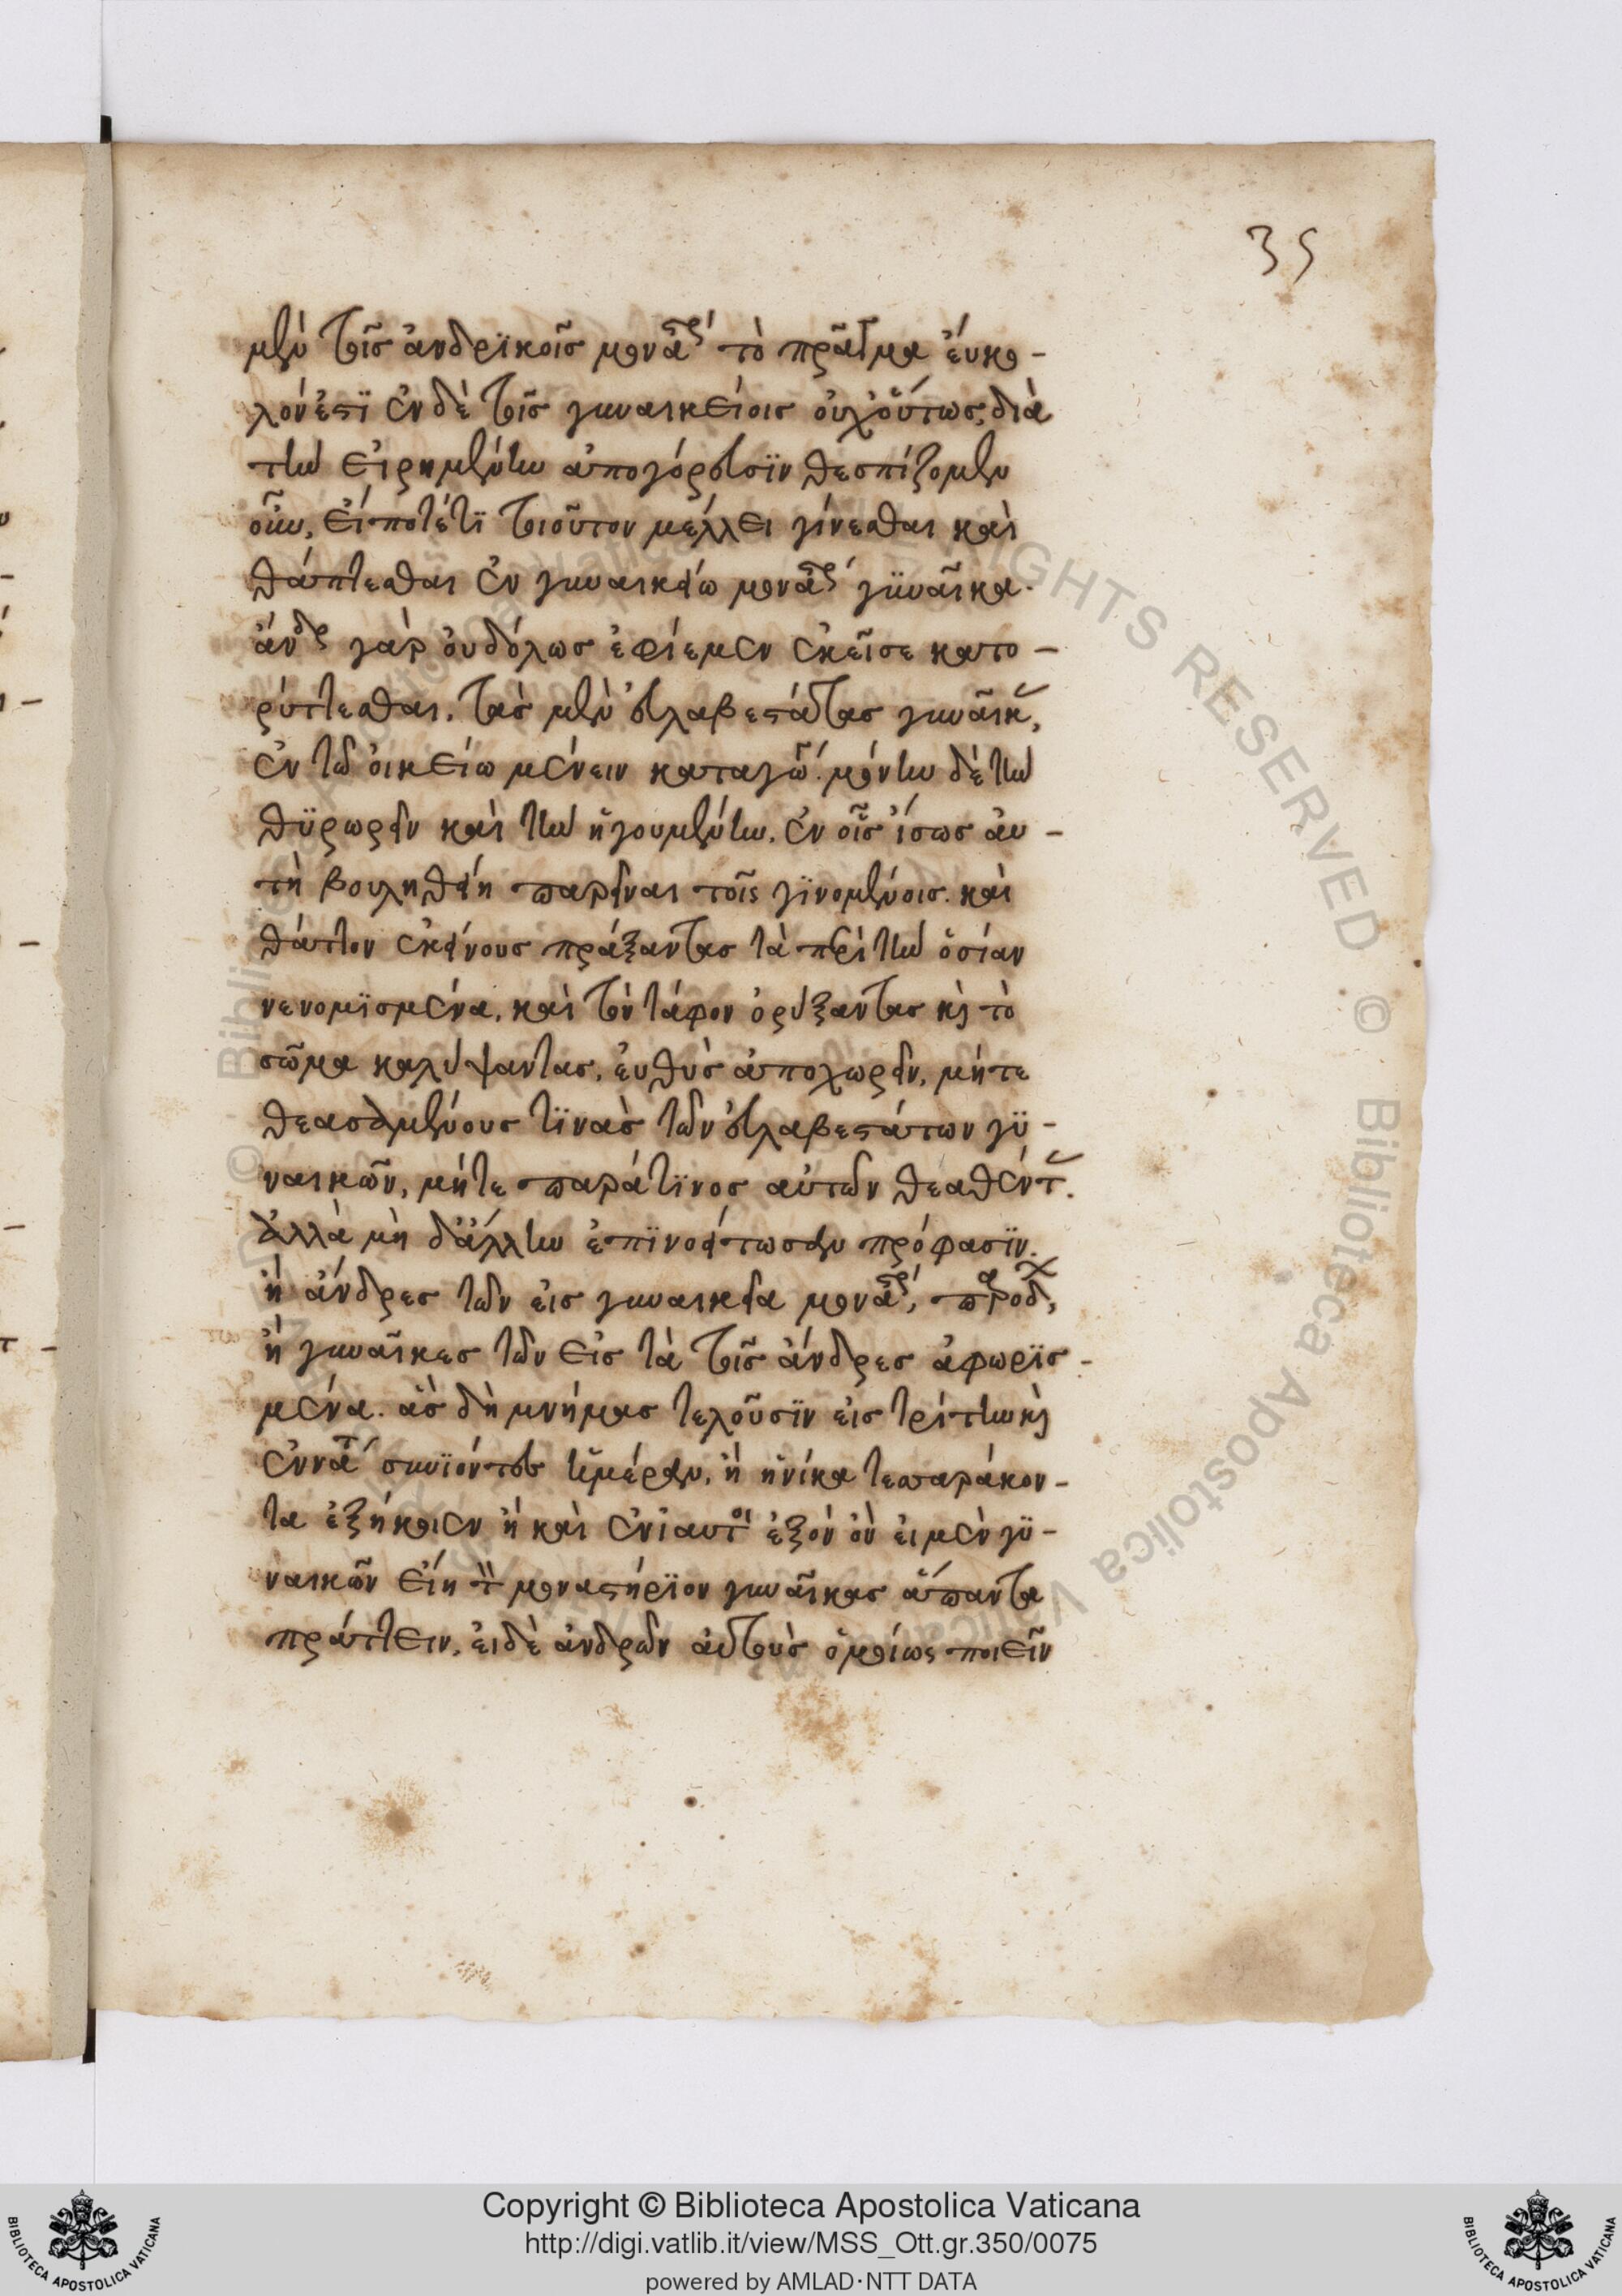 35
μὲν τοῖς ἀνδρϊκοῖς μονασ τὸ πρᾶγμα ἐύκο-
λον ἐστϊ ἐν δὲ τοῖς γυναικείοις οὐχ̓ οὕτως, διὰ
τὴν εἰρημένην ἀπογόρευσϊν θεσπίζομεν
οὖν, εἴ ποτέ τϊ τοιοῦτον μέλλει γίνεσθαι καὶ
θάπτεσθαι ἐν γυναικείω μονασ γϋναῖκα.
ἄνδρ γὰρ ὀυδόλως ἐφίεμεν ἐκεῖσε κατο-
ρύττεσθαι. τὰς μὲν ἐυλαβεστάτας γυναῖκ,
ἐν τῶ ὀικείω μένειν καταγω. μόνην δὲ τὴν
θϋρωρεῖν καὶ τὴν ἡγουμένην. ἐν οἷς ἴσως ἀυ-
τὴ βουληθείη παρεῖναι τοῖς γϊνομένοις. καὶ
θάττον ἐκείνους πράξαντας τὰ περὶ τὴν ὁσίαν
νενομϊσμένα, καὶ τὸν τάφον ὀρύξαντας κὶ τὸ
σῶμα καλύψαντας, ἐυθὺς ἀποχωρεῖν, μήτε
θεασαμένους τϊνὰς τῶν ἐυλαβεστάτων γϋ-
ναικῶν, μήτε παρά τϊνος αὐτῶν θεαθέντ.
ἀλλὰ μὴ δ̓ ἄλλην ἐπϊνοείτωσαν πρόφασϊν.
ἢ ἄνδρες τῶν εἰς γυναικεῖα μονασ, παροδ,
ἢ γυναῖκες τῶν εἰς τὰ τοῖς ἄνδρες ἀφωρϊσ-
μένα. ἃς δὴ μνήμας τελοῦσϊν εἰς τρίτην κὶ
ἐννάτ συνϊόντες ἡμέραν, ἢ ἡνίκα τεσσαράκον-
τα ἐξήκοιεν ἢ καὶ ἐνϊαυτοι ἐξὸν ὂν ἐι μὲν γϋ-
ναικῶν εἴη τ μοναστήρϊον γυναῖκας ἅπαντα
πράττειν. ἐι δὲ ἀνδρῶν ἀυτοὺς ὁμοίως ποιεῖν
Copyright © Biblioteca Apostolica Vaticana
http://digi.vatlib.it/view/MSS_Ott.gr.350/0075
powered by AMLAD·NTT DATA